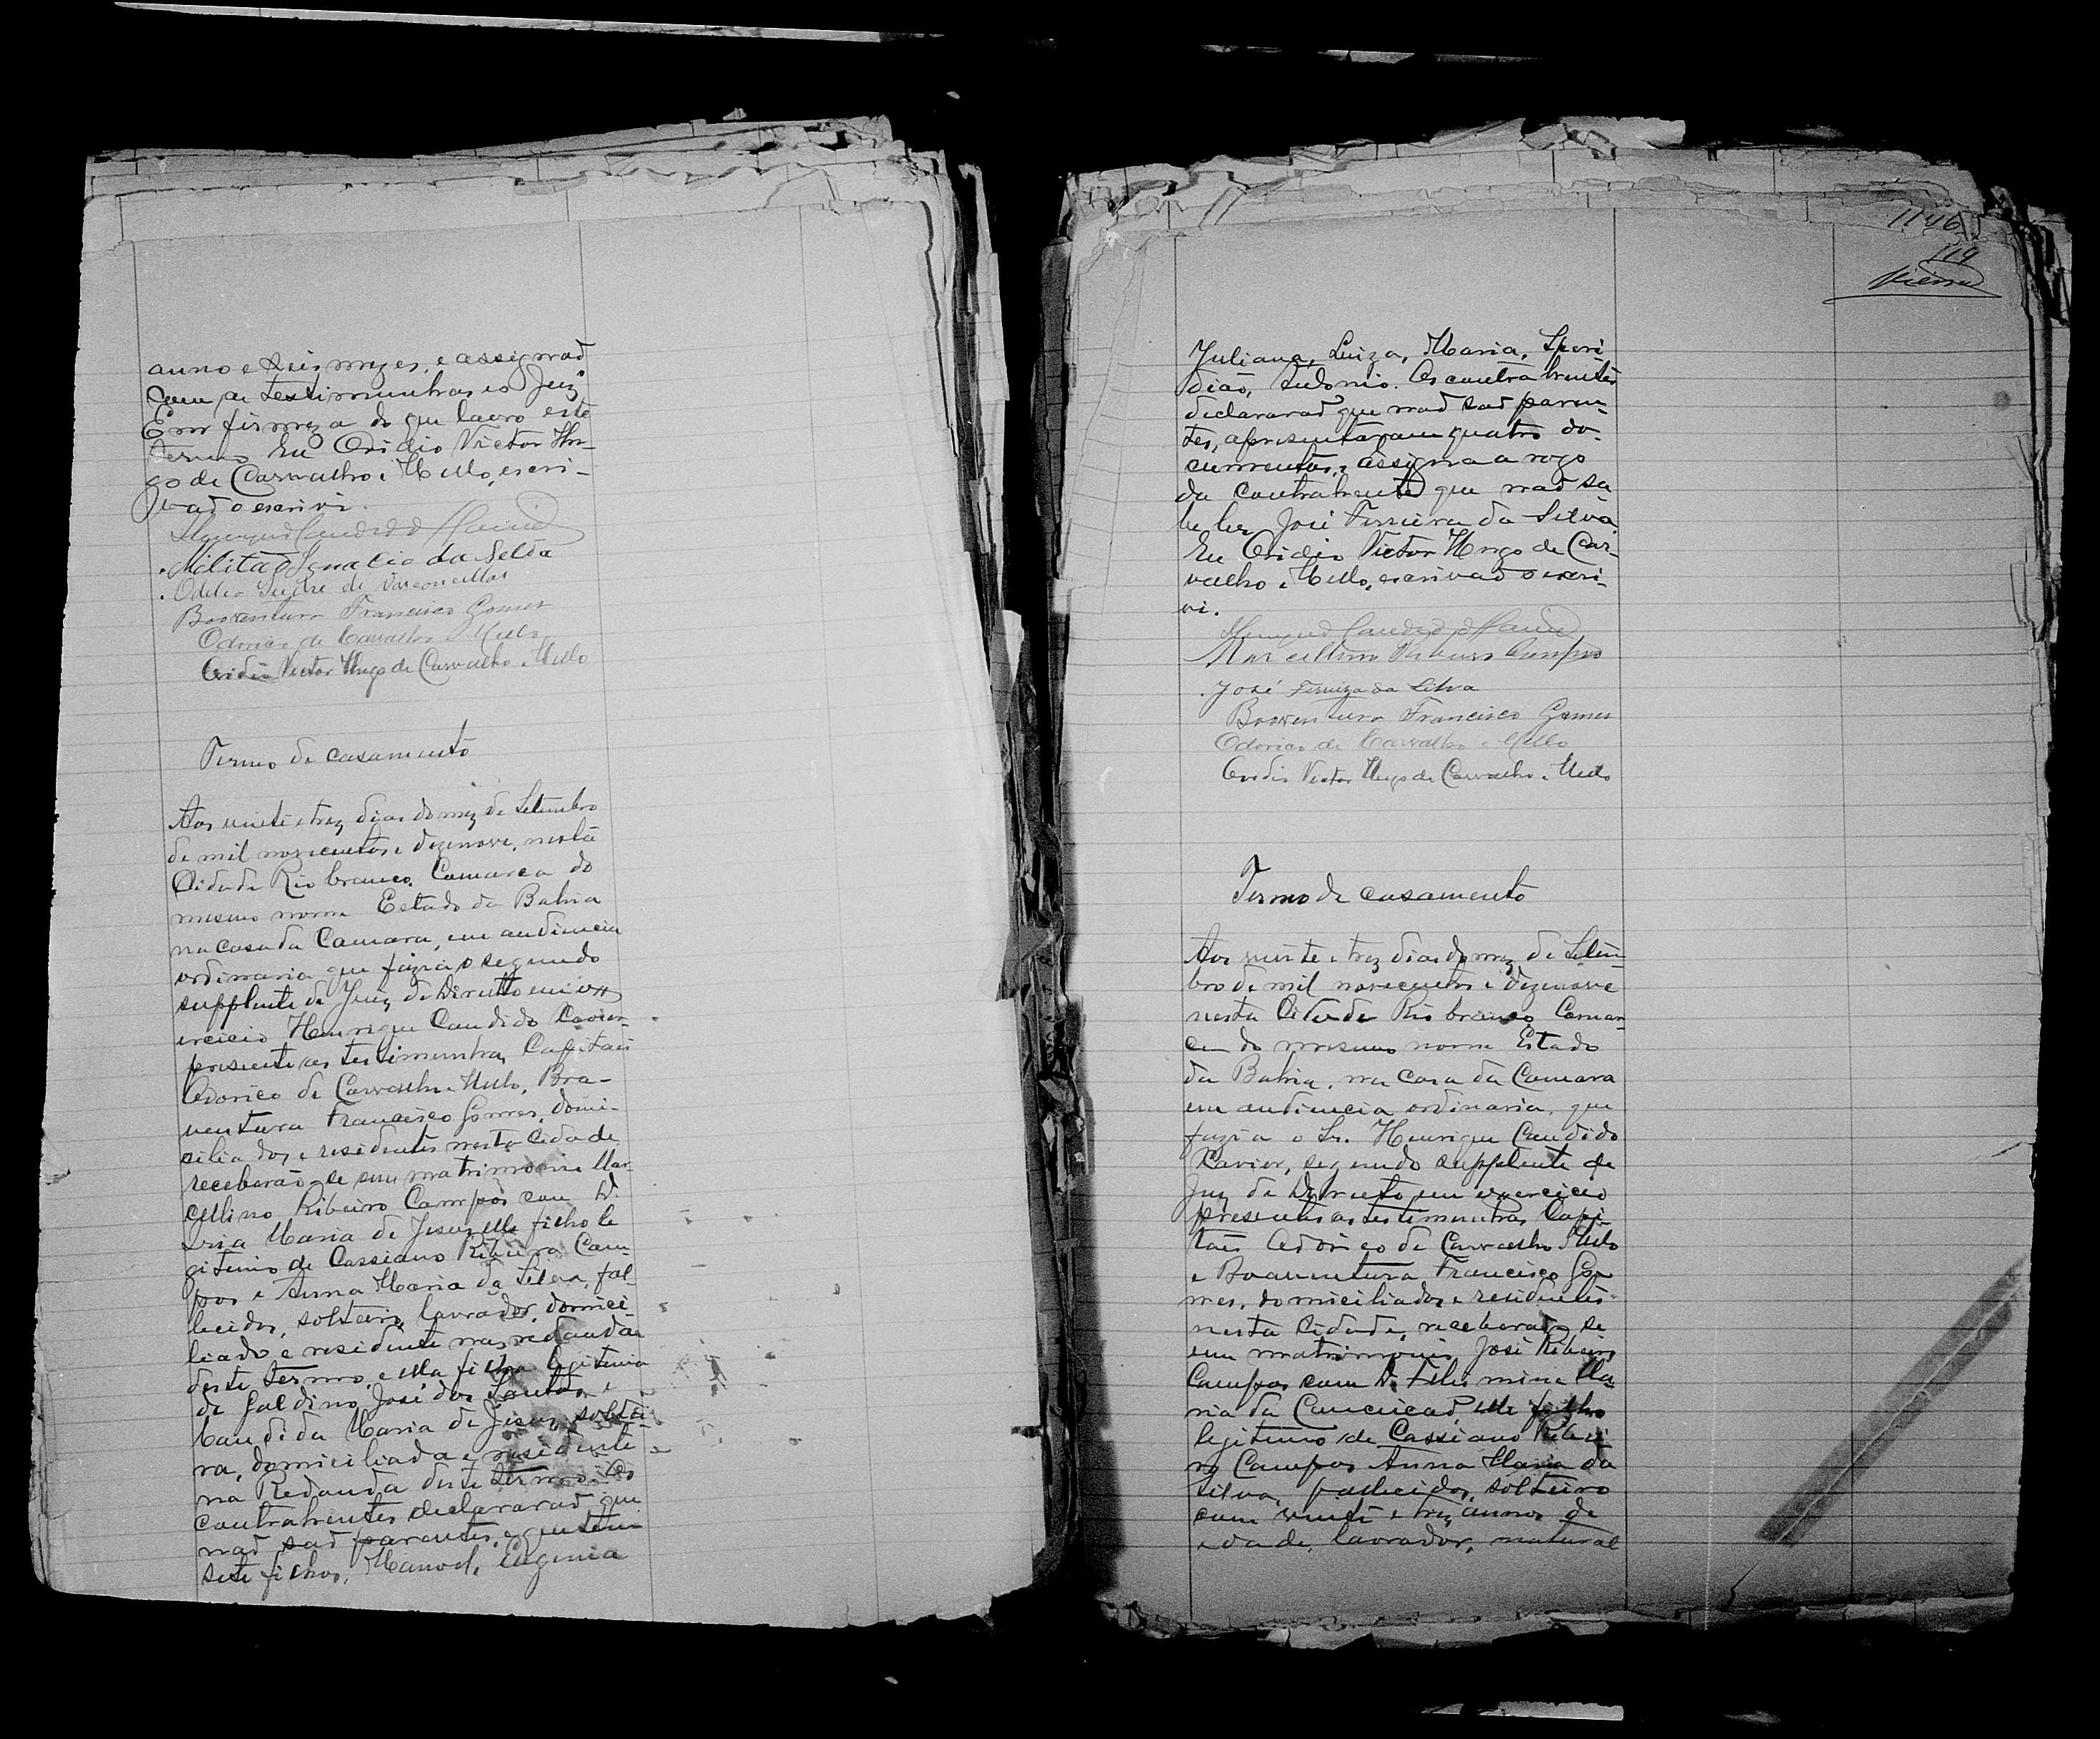 anno e seis mezes, e assignaõ
com as testimunhas e o Juiz
Em firmeza do que lavro este
termo Eu Ovidio Victor Hu-
go de Carvalho e Mello, escri-
vaõ o escrivi.
Henrique Candido Xavier
Militaõ Ignacio da Silva
de Vasconcellos
Boaventura Francisco Gomes
Odorico de Carvalho e Mello
Ovidio Victor Hugo de Carvalho e Mello
Termo de casamento
Aos vinte e trez dias do mez de Setembro
de mil novecentos e dezenove, nesta
Cidade Rio branco, Comarca do
mesmo nome Estado da Bahia
na casa da Camara, em audiencia
ordinaria que fazia o segundo
supplente de Juiz de Direito em ex
ercicio Henrique Candido Xavier
presente as testimunhas Capitaes
Odorico de Carvalho e Mello, Boa-
ventura Francisco Gomes, domi-
ciliados e residentes nesta Cidade
receberaõ-se em matrimonio Mar
cellino Ribeiro Campos com D.
Maria de Jesus, elle filho le
gitimo de Cassiano Ribeiro Cam-
pos e Anna Maria da Silva, fal-
lecidos, solteiro, lavrador, domici-
liado e residente nas redondas
deste termo, e ella filha legitima
de Galdino José dos Santos e
Candida Maria de Jesus, soltei-
ra, domiciliada e residente
na Redonda deste termo. Os
contrahentes declararaõ que
naõ saõ parentes, e que tem
sete filhos, Manoel, Eugenia
1146
119
Vieira
Juliana, Luiza, Maria, Speri
diaõ, Antonio. Os contrahentes
declararaõ que naõ saõ paren-
tes, apresentaram quatro do-
cumentos, e assigna a rogo
da contrahente que naõ sa
be ler José Ferreira da Silva
Eu Ovidio Victor Hugo de Car-
valho e Mello, escrivaõ o escri-
vi.
Henrique Candido Xavier
Marcellino Ribeiro Campos
José Ferreira da Silva
Boaventura Francisco Gomes
Odorico de Carvalho e Mello
Ovidio Victor Hugo de Carvalho e Mello
Termo de casamento
Aos vinte e trez dias do mez de Setem-
bro de mil novecentos e dezenove
nesta Cidade Rio branco, Comar-
ca do mesmo nome Estado
da Bahia, na casa da Camara
em audiencia ordinaria, que
fazia o Sr. Henrique Candido
Xavier, segundo supplente de
Juiz de Direito em exercicio
presentes as testimunhas Capi-
tães Odorico de Carvalho e Mello
e Boaventura Francisco Go-
mes, domiciliados e residentes
nesta Cidade, receberaõ se
em matrimonio José Ribeiro
Campos com D. Felismina Ma-
ria da Conceicaõ, elle filho
legitimo de Cassiano Ribei-
ro Campos Anna Maria da
Silva, fallecidos, solteiro
com vinte e trez annos de
idade, lavrador, natural